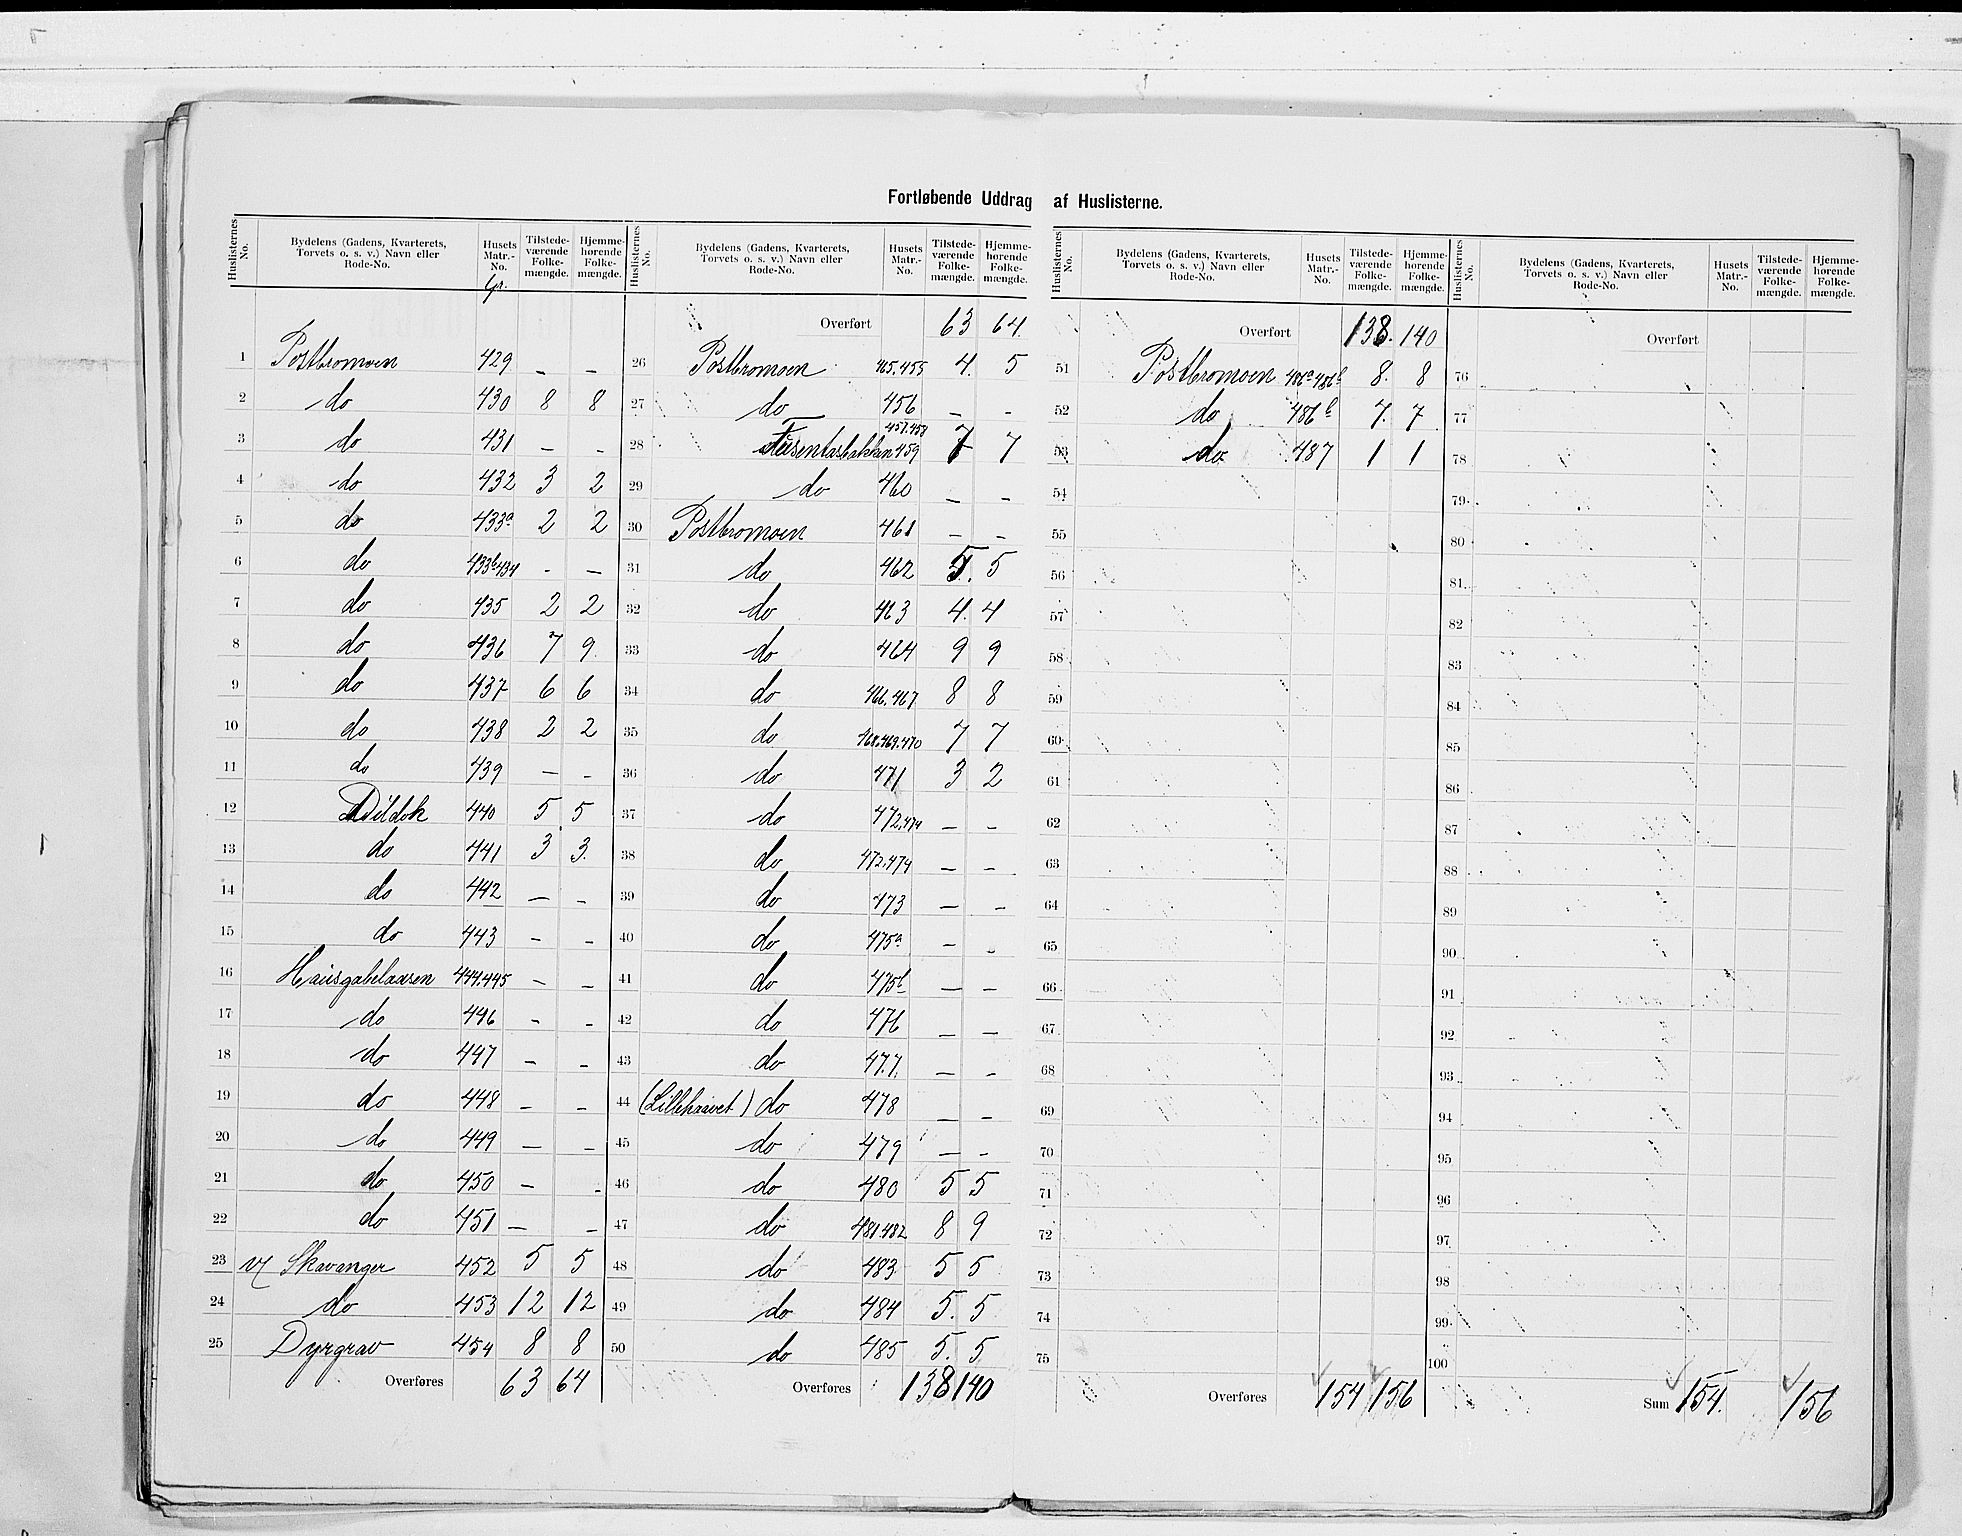 Fortløbende Uddrag af Huslisterne.
Huslisternes No. | Bydelens (Gadens, Kvarterets, Torvets o. s. v.) Navn eller Rode-No. | Husets Matr.-No. | Tilstedeværende Folkemængde. | Hjemmehørende Folkemængde.
Gr.
1 Postbromoen 429 – –
2 do 430 8 8
3 do 431 – –
4 do 432 3 2
5 do 433a 2 2
6 do 433b.434 – –
7 do 435 2 2
8 do 436 7 9
9 do 437 6 6
10 do 438 2 2
11 do 439 – –
12 Dildok 440 5 5
13 do 441 3 3
14 do 442 – –
15 do 443 – –
16 Hausgabelaasen 444.445 – –
17 do 446 – –
18 do 447 – –
19 do 448 – –
20 do 449 – –
21 do 450 – –
22 do 451 – –
23 v/ Skavanger 452 5 5
24 do 453 12 12
25 Dyrgrav 454 8 8
Overføres 63 64
Huslisternes No. | Bydelens (Gadens, Kvarterets, Torvets o. s. v.) Navn eller Rode-No. | Husets Matr.-No. | Tilstedeværende Folkemængde. | Hjemmehørende Folkemængde.
Overført 63 64.
26 Postbromoen 465.455 4. 5
27 do 456 – –
28 457.458 459 7 7
29 do 460 – –
30 Postbromoen 461 – –
31 do 462 5. 5
32 do 463 4. 4
33 do 464 9 9
34 do 466.467 8 8
35 do 468.469.470 7 7
36 do 471 3 2
37 do 472.474 – –
38 do 472.474 – –
39 do 473 – –
40 do 475a – –
41 do 475b – –
42 do 476 – –
43 do 477. – –
44 (Lillehaavet) do 478 – –
45 do 479 – –
46 do 480 5 5
47 do 481.482 8 9
48 do 483 5 5
49 do 484 5. 5
50 do 485 5. 5
Overføres 138 140
Huslisternes No. | Bydelens (Gadens, Kvarterets, Torvets o. s. v.) Navn eller Rode-No. | Husets Matr.-No. | Tilstedeværende Folkemængde. | Hjemmehørende Folkemængde.
Overført 138. 140
51 Postbromoen 486a 486b 8. 8
52 do 486b 7. 7
53 do 487 1 1
54
55
56
57
58
59
60
61
62
63
64
65
66
67
68
69
70
71
72
73
74
75
Overføres 154 156
Huslisternes No. | Bydelens (Gadens, Kvarterets, Torvets o. s. v.) Navn eller Rode-No. | Husets Matr.-No. | Tilstedeværende Folkemængde. | Hjemmehørende Folkemængde.
Overført
76
77
78
79
80
81
82
83
84
85
86
87
88
89
90
91
92
93
94
95
96
97
98
99
100
Sum 154. 156